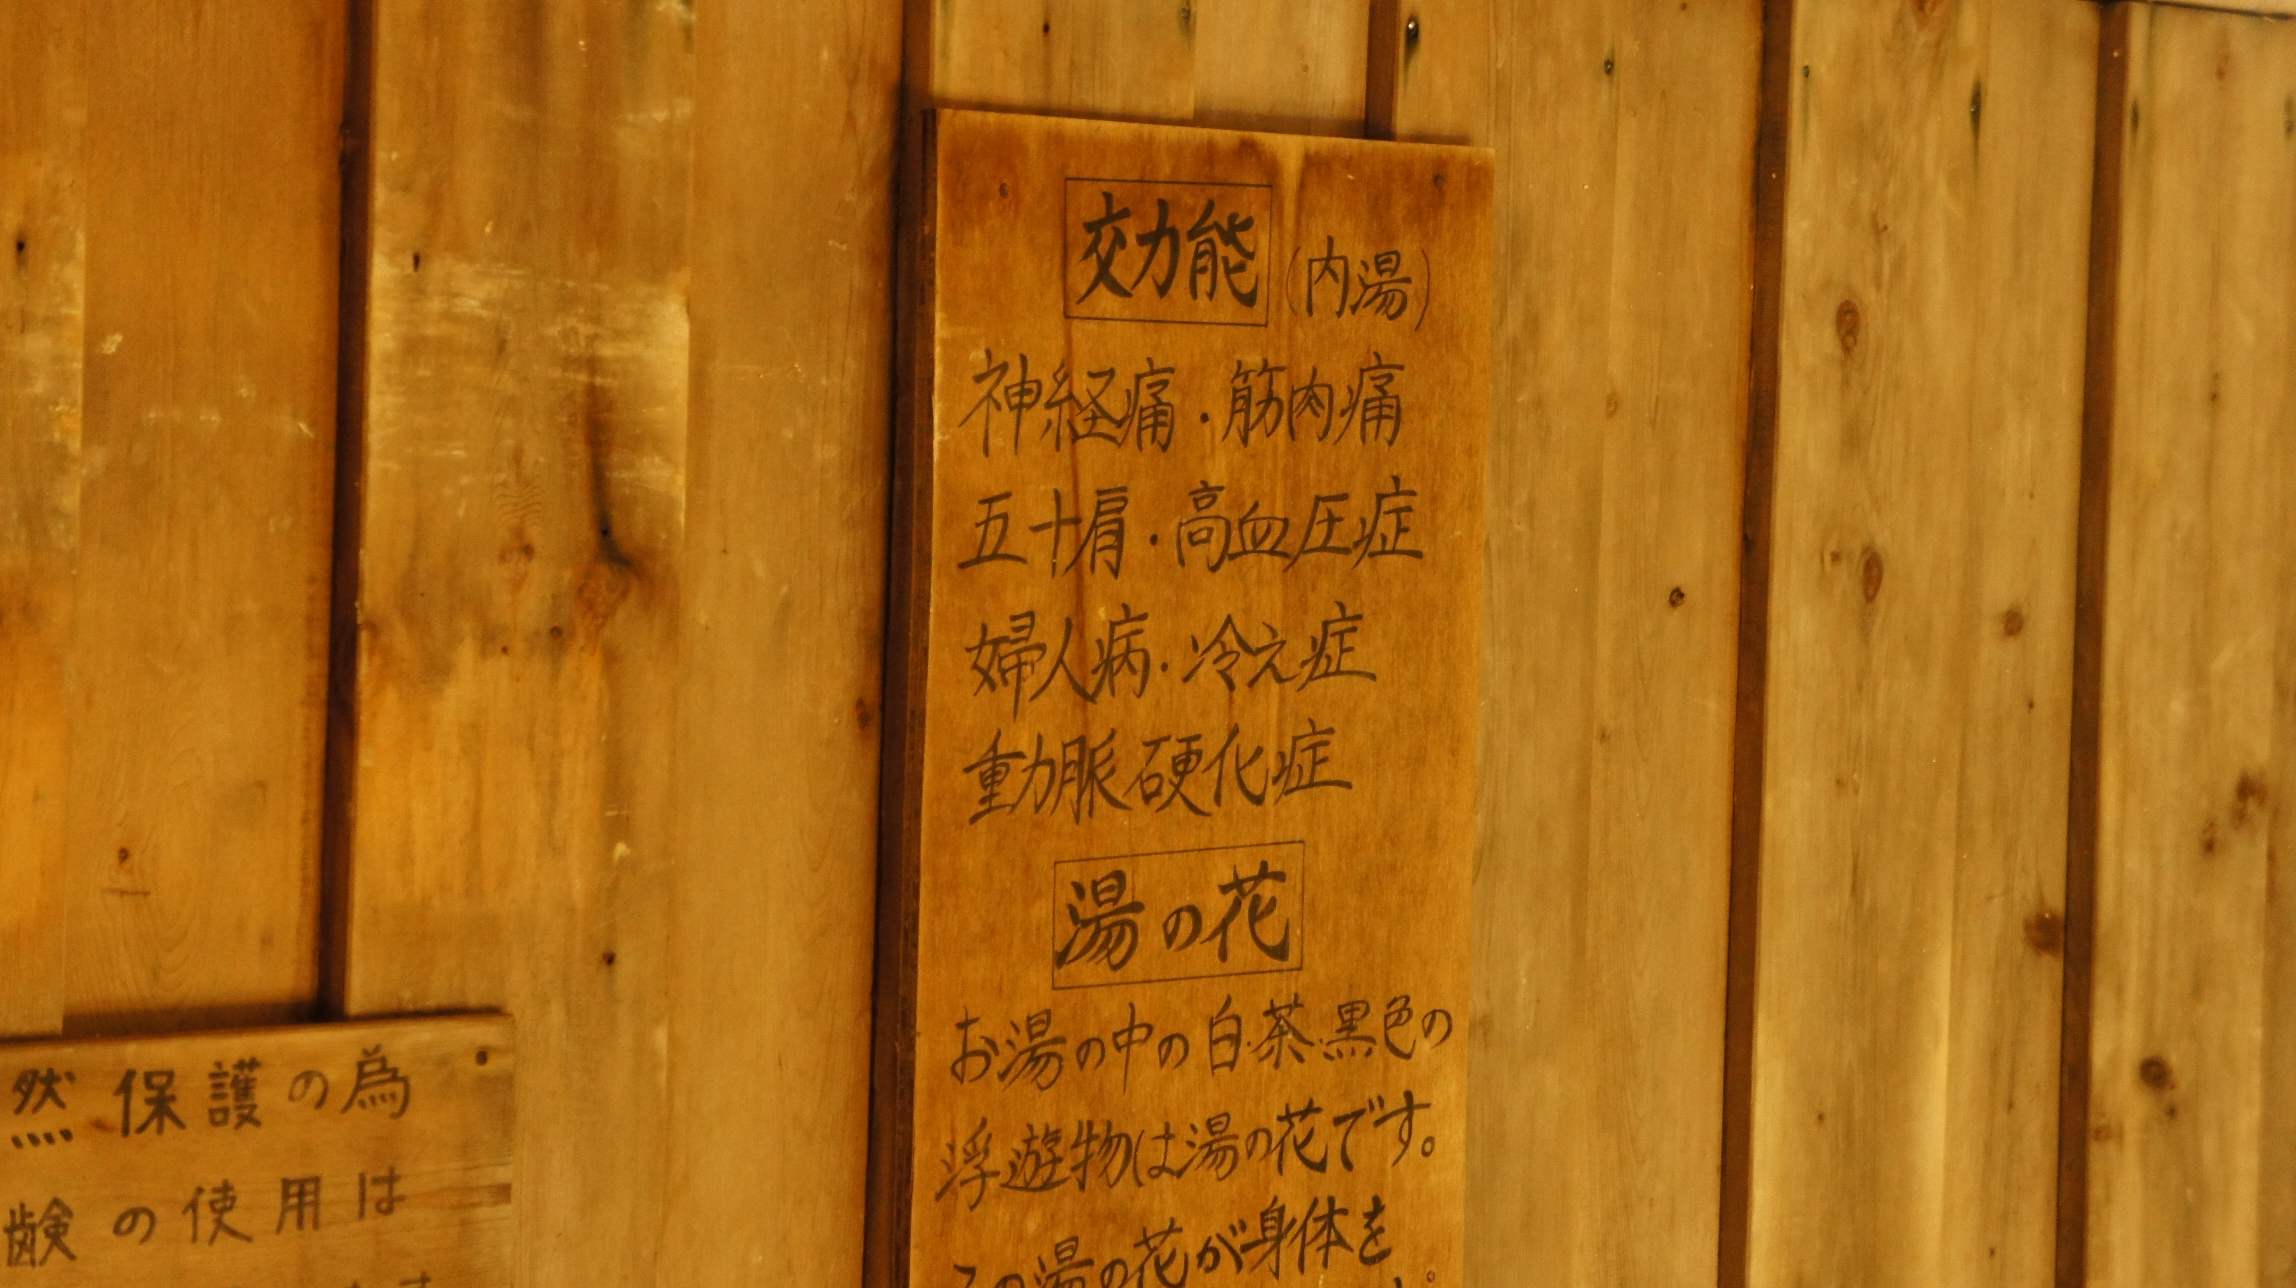 効能(内湯)
神経痛・筋肉痛
五十肩・高血圧症
婦人病・冷え症
動脈硬化症
湯の花
お湯の中の白・茶・黒色の
浮遊物は湯の花です。
この湯の花が身体を
然保護の為
の使用は